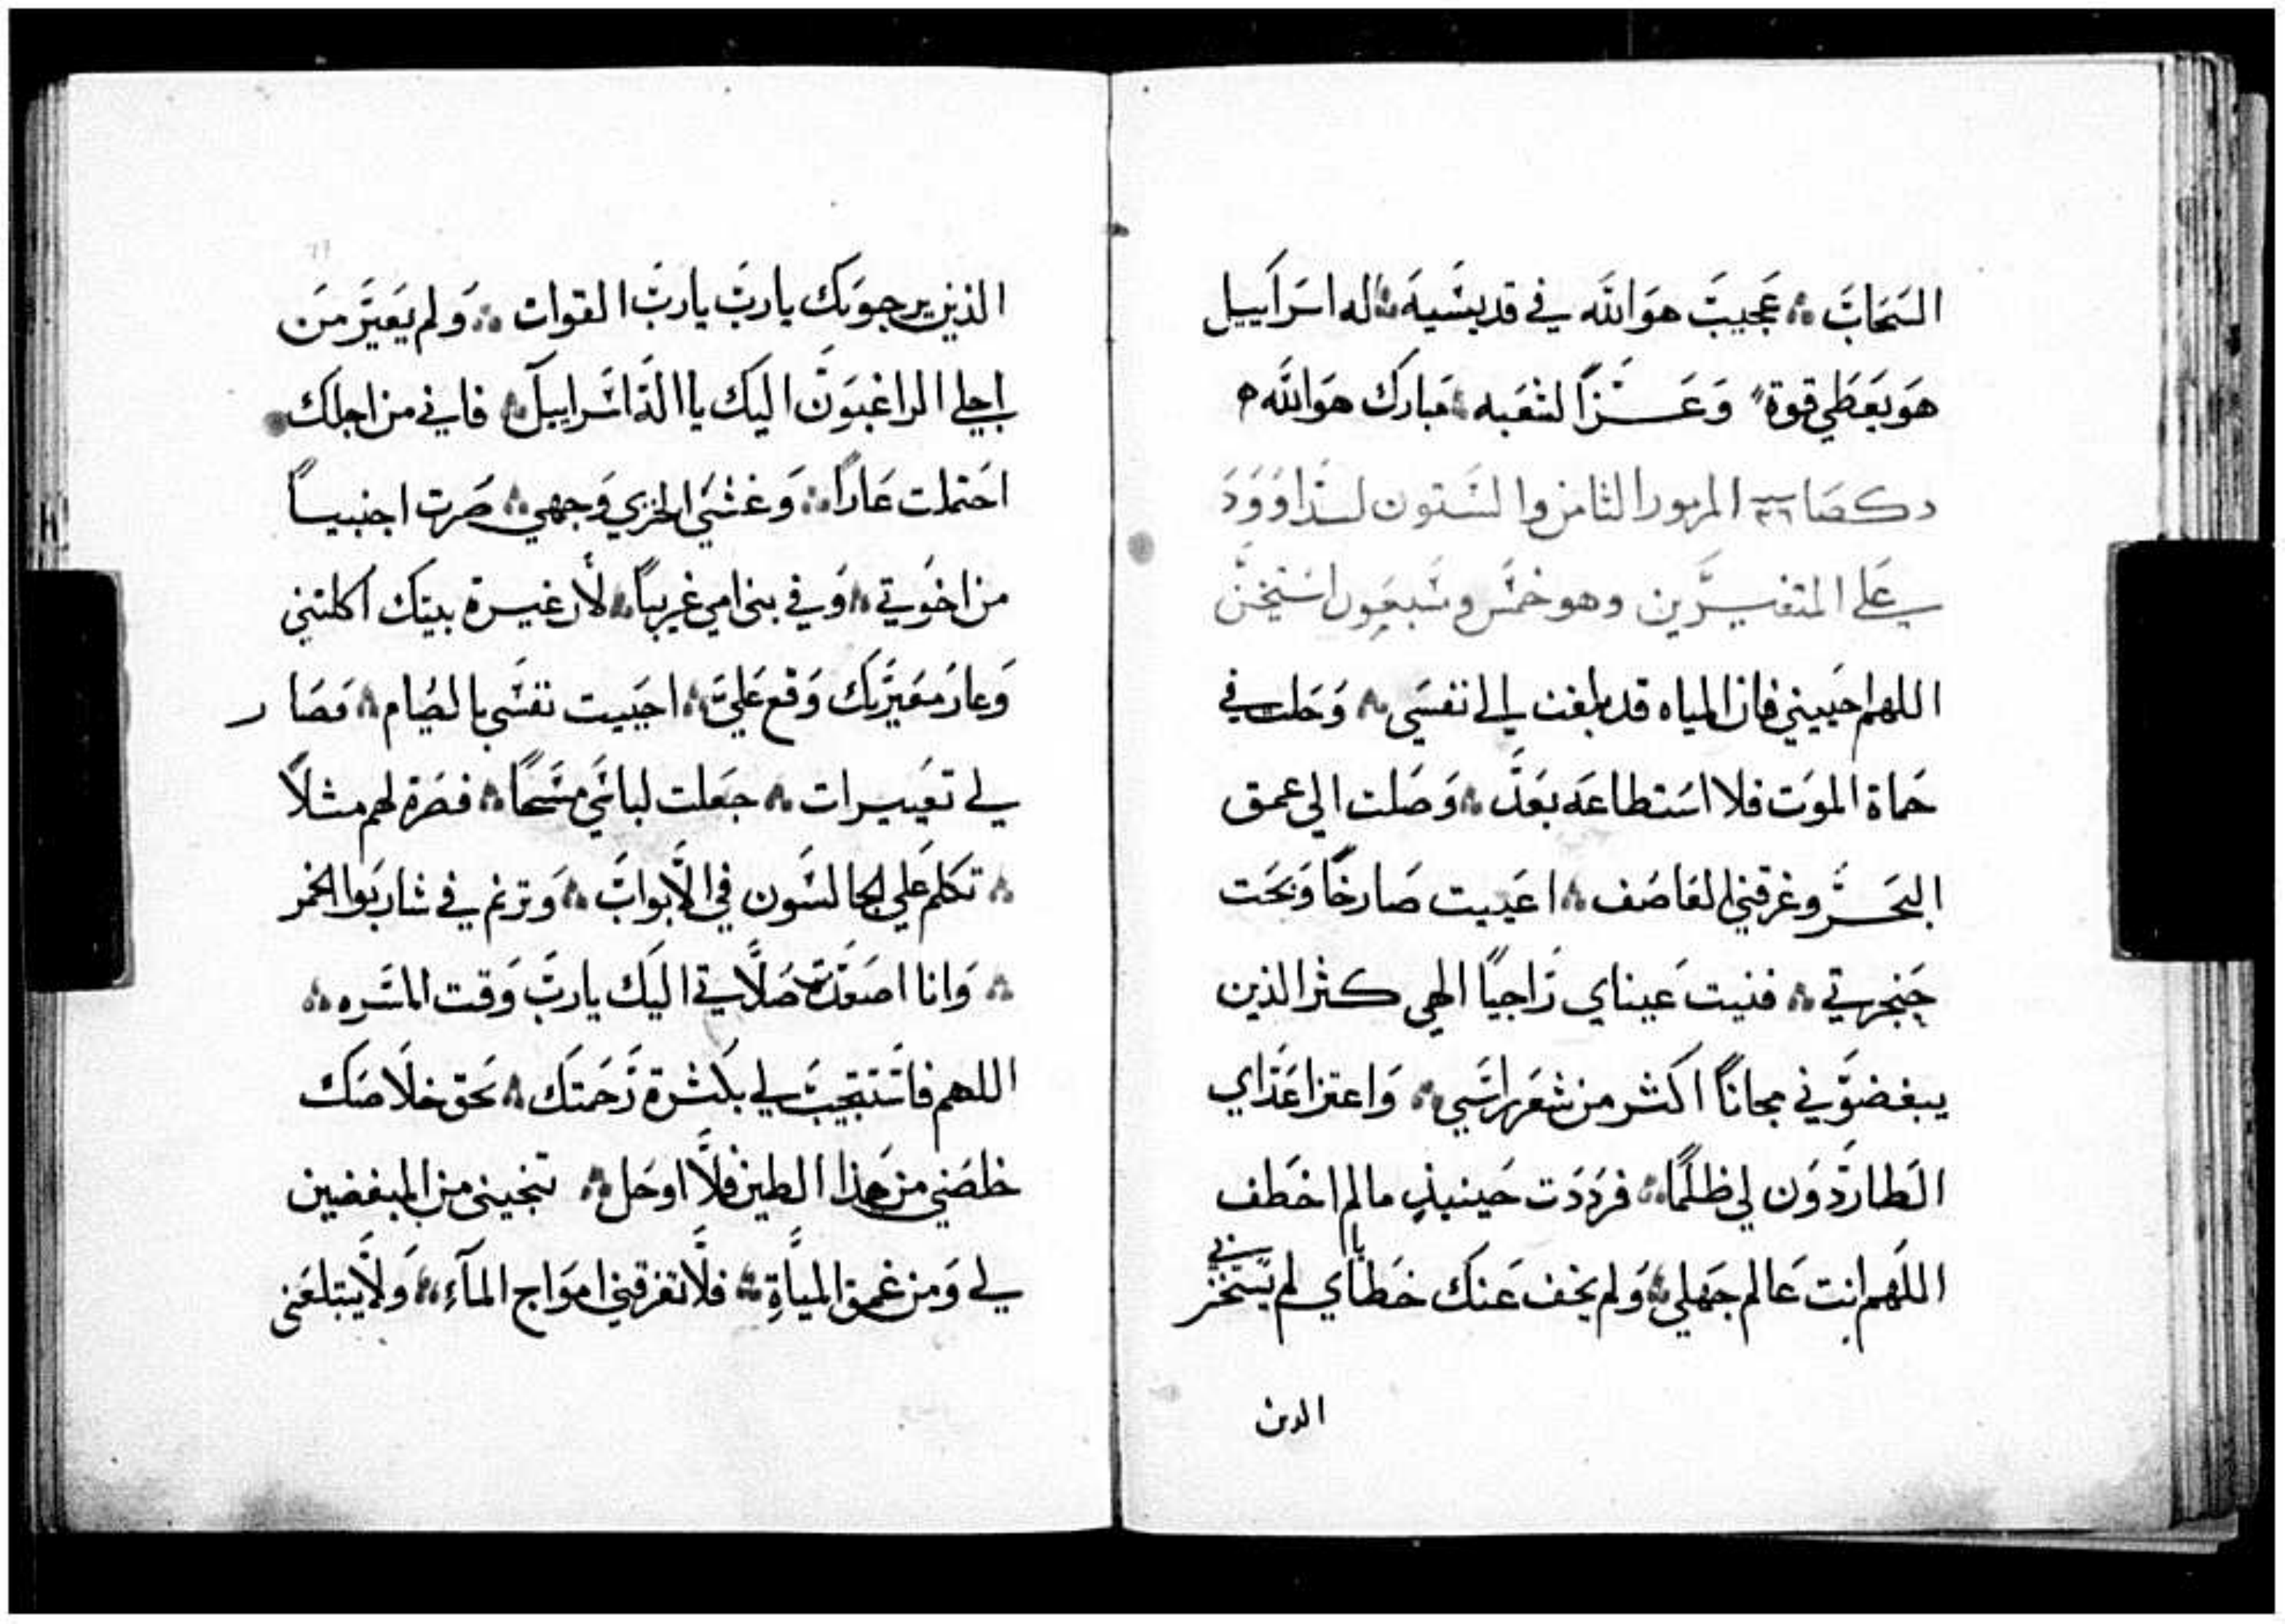 السَحَابَ ۞ عَجيبَ هوَ اللَّه في قديسَيهَ ۞ اله اسَرَاييل
هوَ يَعَطي قوة وَعَــزًا لشَعَبه ۞ مَبارك هوَ اللَّه
المزمور الثامن والسَتون لَدَاوَود
علي المتغيــرين وهو خمَس وسَبعَون
اللهم احَييني فان المياه قد بلغت الي نفسَي ۞ وَحَلت في
حَماة الموَت فلا اسَتطاعَه بَعَد ۞ وَصَلت الي عمق
البَحَــر وغرقني العَاصَف ۞ اعَييت صَارخًا وَبحَت
حَنجرتي ۞ فنيت عَيناي رَاجيًا الهي كثر الذين
يبغضوَني مجانًا اكثر من شعَر راسَي ۞ وَاعتز اعَدَاي
الطاردوَن لي ظلمًا ۞ فردَدَت حَينيذٍ ما لم اخطف
اللهم انت عَالم جَهلي ۞ وَلم يخف عَنك خطاياي لم يسَتخز بي
الدين
الذين يرجوَنك يا ربَ يا ربَ القوات ۞ وَلم يَعَيَّر مَن
اجلي الراغبوَن اليك يا الهَ اسَراييل ۞ فاني من اجلك
احَتملت عَارًا ۞ وَغشَي الخزي وَجهي ۞ صَرت اجنبيــاً
من اخوَتي ۞ وَفي بني امي غريبًا ۞ لأن غيــرة بيتك اكلتني
وَعار مَعَيَّريك وَقع عَليَّ ۞ احَنيت نفسَي بالصَيام ۞ فصَار
لي تعَييــرات ۞ جَعَلت لباسَي مسَحًا ۞ فصَرة لهم مثلاً
۞ تكلم عَلي الجالسَون في الأبوابَ ۞ وَترنم في شاربَوا الخمر
۞ وَانا اصَعَدَت صَلاتي اليَك يا ربَ وَقت المسَره ۞
اللهم فاسَتجيبَ لي بكَثرة رَحَمتك ۞ بحَق خلاصَك
خلصَني من هَذا الطين فلا اوحَل ۞ تنجيني من المبغضين
لي وَمن عَمق المياة ۞ فلا تغرقني اموَاج المآءِ ۞ وَلا يبتلعَني